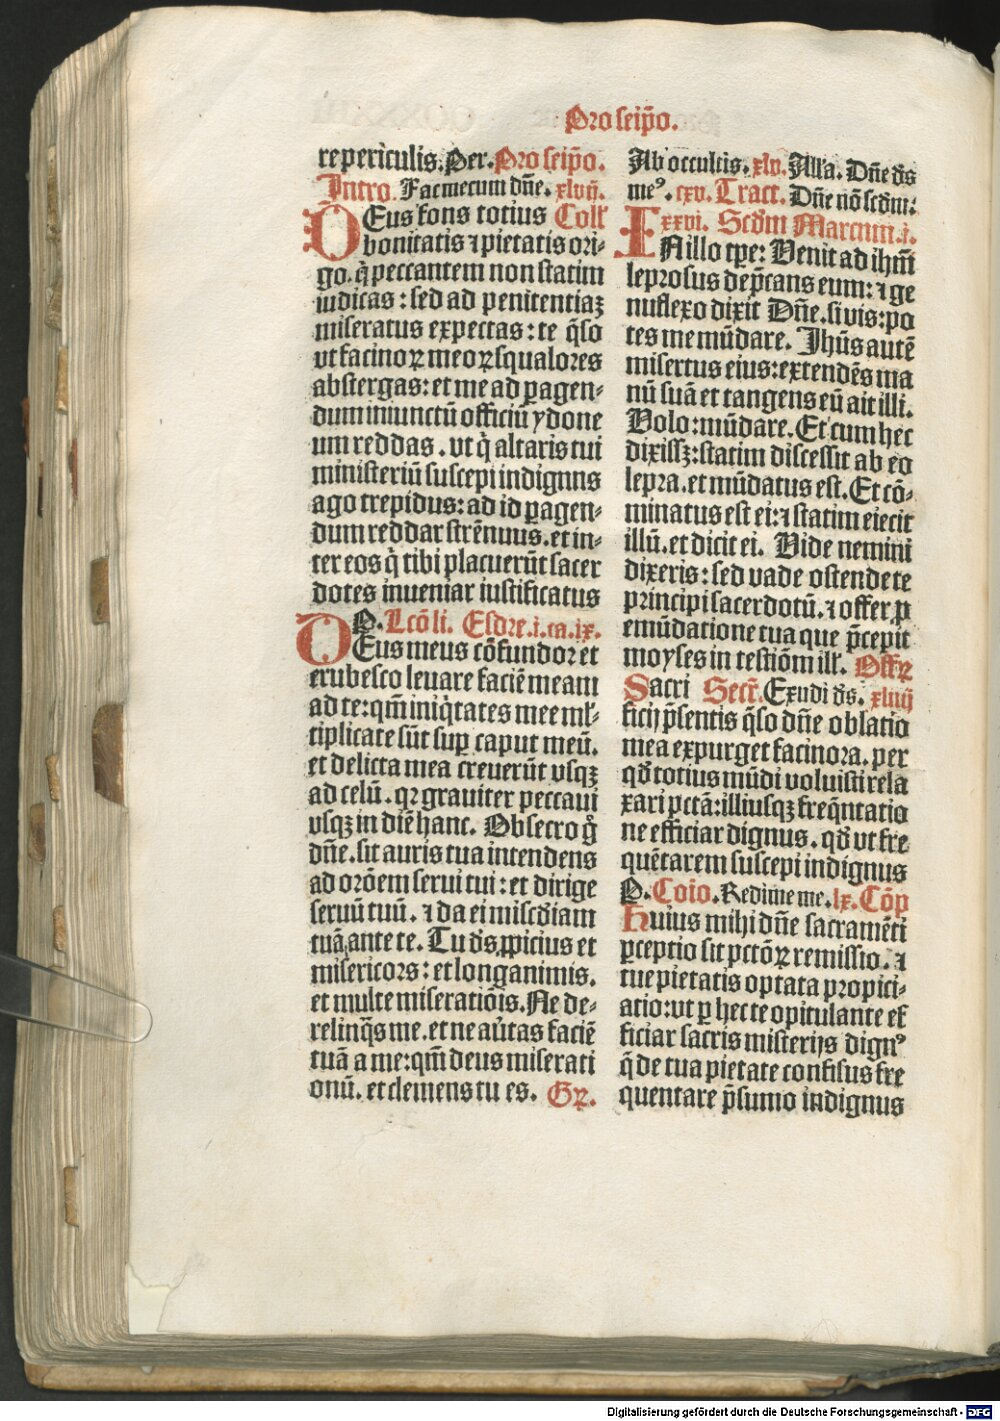 Pro seip̄o.
re periculis. Per. Pro seip̄o.
Intro. Fac mecum dn̄e. xlvij.
DEus fons totius Coll'
bonitatis ⁊ pietatis ori-
go. q̄ peccantem non statim
iudicas: sed ad penitentiaꝫ
miseratus expectas: te q̄so
vt facinoꝝ meoꝝ squalores
abstergas: et me ad ꝑagen-
dum iniunctū officiū ydone
um reddas. vt q̇ altaris tui
ministeriū suscepi indignus
ago trepidus: ad id ꝑagen-
dum reddar strēnuus. et in-
ter eos q̇ tibi placuerūt sacer
dotes inueniar iustificatus
P. Lcō li. Esdre. i. ca. ix.
DEus meus cōfundor et
erubesco leuare faciē meam
ad te: qm̄ iniq̇tates mee ml'-
tiplicate sūt suꝑ caput meū.
et delicta mea creuerūt vsqꝫ
ad celū. qꝛ grauiter peccaui
vsqꝫ in diē hanc. Obsecro g̊
dn̄e. sit auris tua intendens
ad orōem serui tui: et dirige
seruū tuū. ⁊ da ei misc̄diam
tuā ante te. Tu ds̄ ꝓpicius et
misericors: et longanimis.
et multe miseratiōis. Ne de-
relinq̄s me. et ne aūtas faciē
tuā a me: qm̄ deus miserati
onū. et clemens tu es. Gꝝ.
Ab occultis. xlv. All'a. Dn̄e ds̄
me⁹. cxv. Tract. Dn̄e nō scd̄m:
xxvi. Scd̄m Marcum. i.
IN illo tꝑe: Venit ad ihm̄
leprosus dep̄cans eum: ⁊ ge
nuflexo dixit Dn̄e. si vis: po
tes me mūdare. Jhūs autē
misertus eius: extendēs ma
nū suā et tangens eū ait illi.
Volo: mūdare. Et cum hec
dixissꝫ: statim discessit ab eo
lepra. et mūdatus est. Et cō-
minatus est ei: ⁊ statim eiecit
illū. et dicit ei. Vide nemini
dixeris: sed vade ostende te
principi sacerdotū. ⁊ offer ꝓ
emūdatione tua que p̄cepit
moyses in testiōm ill'. Offꝝ
Sacri Secr̄. Exudi ds̄. xliiij
ficij p̄sentis q̄so dn̄e oblatio
mea expurget facinora. per
qd̄ totius mūdi voluisti rela
xari pctā: illiusqꝫ freq̄ntatio
ne efficiar dignus. qd̄ vt fre
quētarem suscepi indignus
P. Coīo. Redime me. lx. Cōp
Huius mihi dn̄e sacramēti
ꝑceptio sit pctōꝝ remissio. ⁊
tue pietatis optata propici-
atio: vt ꝑ hec te opitulante ef
ficiar sacris misterijs dign⁹
q̄ de tua pietate confisus fre
quentare p̄sumo indignus
Digitalisierung gefördert durch die Deutsche Forschungsgemeinschaft - DFG